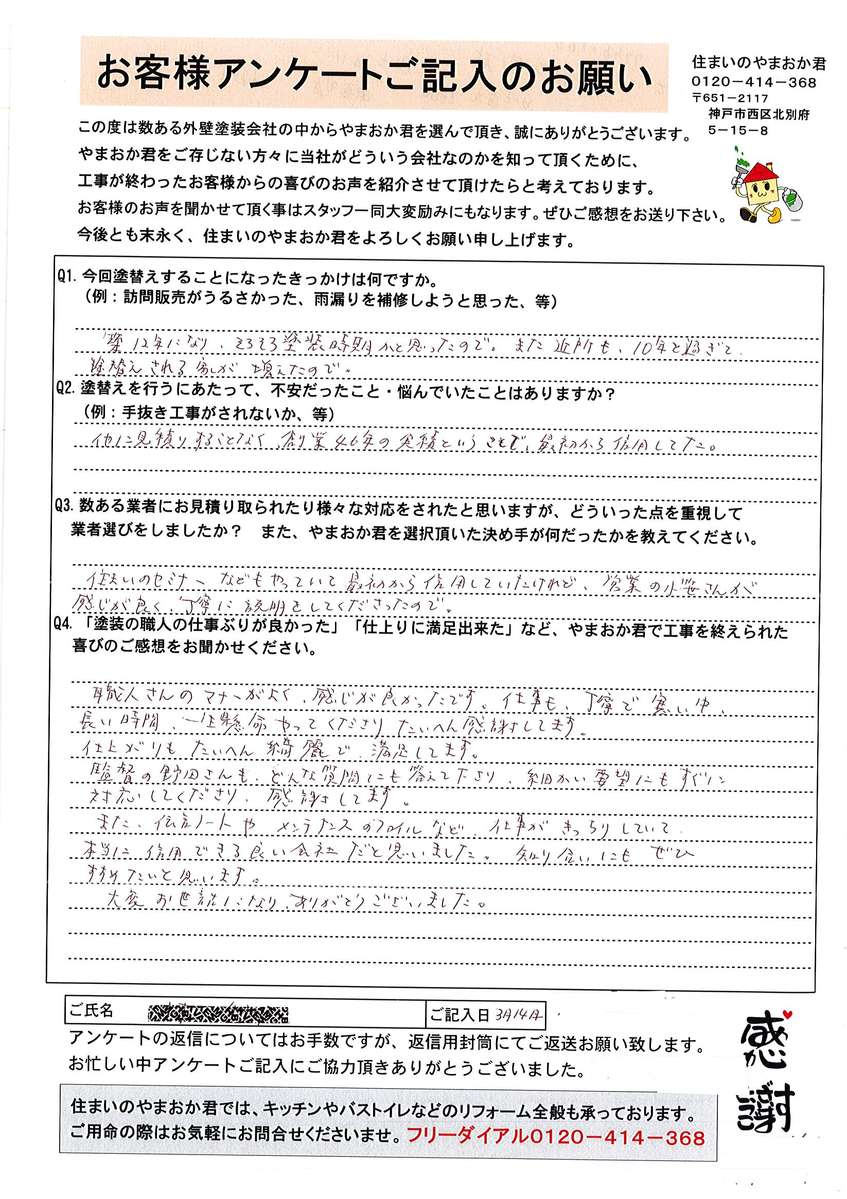 お客様アンケートご記入のお願い
住まいのやまおか君
0120-414-368
〒651-2117
神戸市西区北別府
5-15-8
この度は数ある外壁塗装会社の中からやまおか君を選んで頂き、誠にありがとうございます。
やまおか君をご存じない方々に当社がどういう会社なのかを知って頂くために、
工事が終わったお客様からの喜びのお声を紹介させて頂けたらと考えております。
お客様のお声を聞かせて頂く事はスタッフ一同大変励みにもなります。ぜひご感想をお送り下さい。
今後とも末永く、住まいのやまおか君をよろしくお願い申し上げます。
Q1. 今回塗替えすることになったきっかけは何ですか。
(例：訪問販売がうるさかった、雨漏りを補修しようと思った、等)
築12年になり、そろそろ塗装時期かと思ったので。また近所も、10年を過ぎて
塗替えされる家が増えたので。
Q2. 塗替えを行うにあたって、不安だったこと・悩んでいたことはありますか？
(例：手抜き工事がされないか、等)
他に見積りすることなく、創業46年の実績ということで、最初から信用してた。
Q3. 数ある業者にお見積り取られたり様々な対応をされたと思いますが、どういった点を重視して
業者選びをしましたか？　また、やまおか君を選択頂いた決め手が何だったかを教えてください。
住まいのセミナーなどもやっていて最初から信用していたけれど、営業の小笹さんが
感じが良く、丁寧に説明をしてくださったので。
Q4. 「塗装の職人の仕事ぶりが良かった」「仕上りに満足出来た」など、やまおか君で工事を終えられた
喜びのご感想をお聞かせください。
職人さんのマナーがよく、感じが良かったです。仕事も、丁寧で寒い中、
長い時間、一生懸命やってくださりたいへん感謝してます。
仕上がりもたいへん綺麗で、満足してます。
監督の野田さんも、どんな質問にも答えて下さり、細かい要望にもすぐに
対応してくださり、感謝してます。
また、伝言ノートやメンテナンスのファイルなど、仕事がきっちりしていて、
本当に信用できる良い会社だと思いました。知り合いにもぜひ
すすめたいと思います。
大変お世話になり、ありがとうございました。
ご氏名
ご記入日 3月14日
アンケートの返信についてはお手数ですが、返信用封筒にてご返送お願い致します。
お忙しい中アンケートご記入にご協力頂きありがとうございました。
感謝
住まいのやまおか君では、キッチンやバストイレなどのリフォーム全般も承っております。
ご用命の際はお気軽にお問合せくださいませ。フリーダイアル0120-414-368